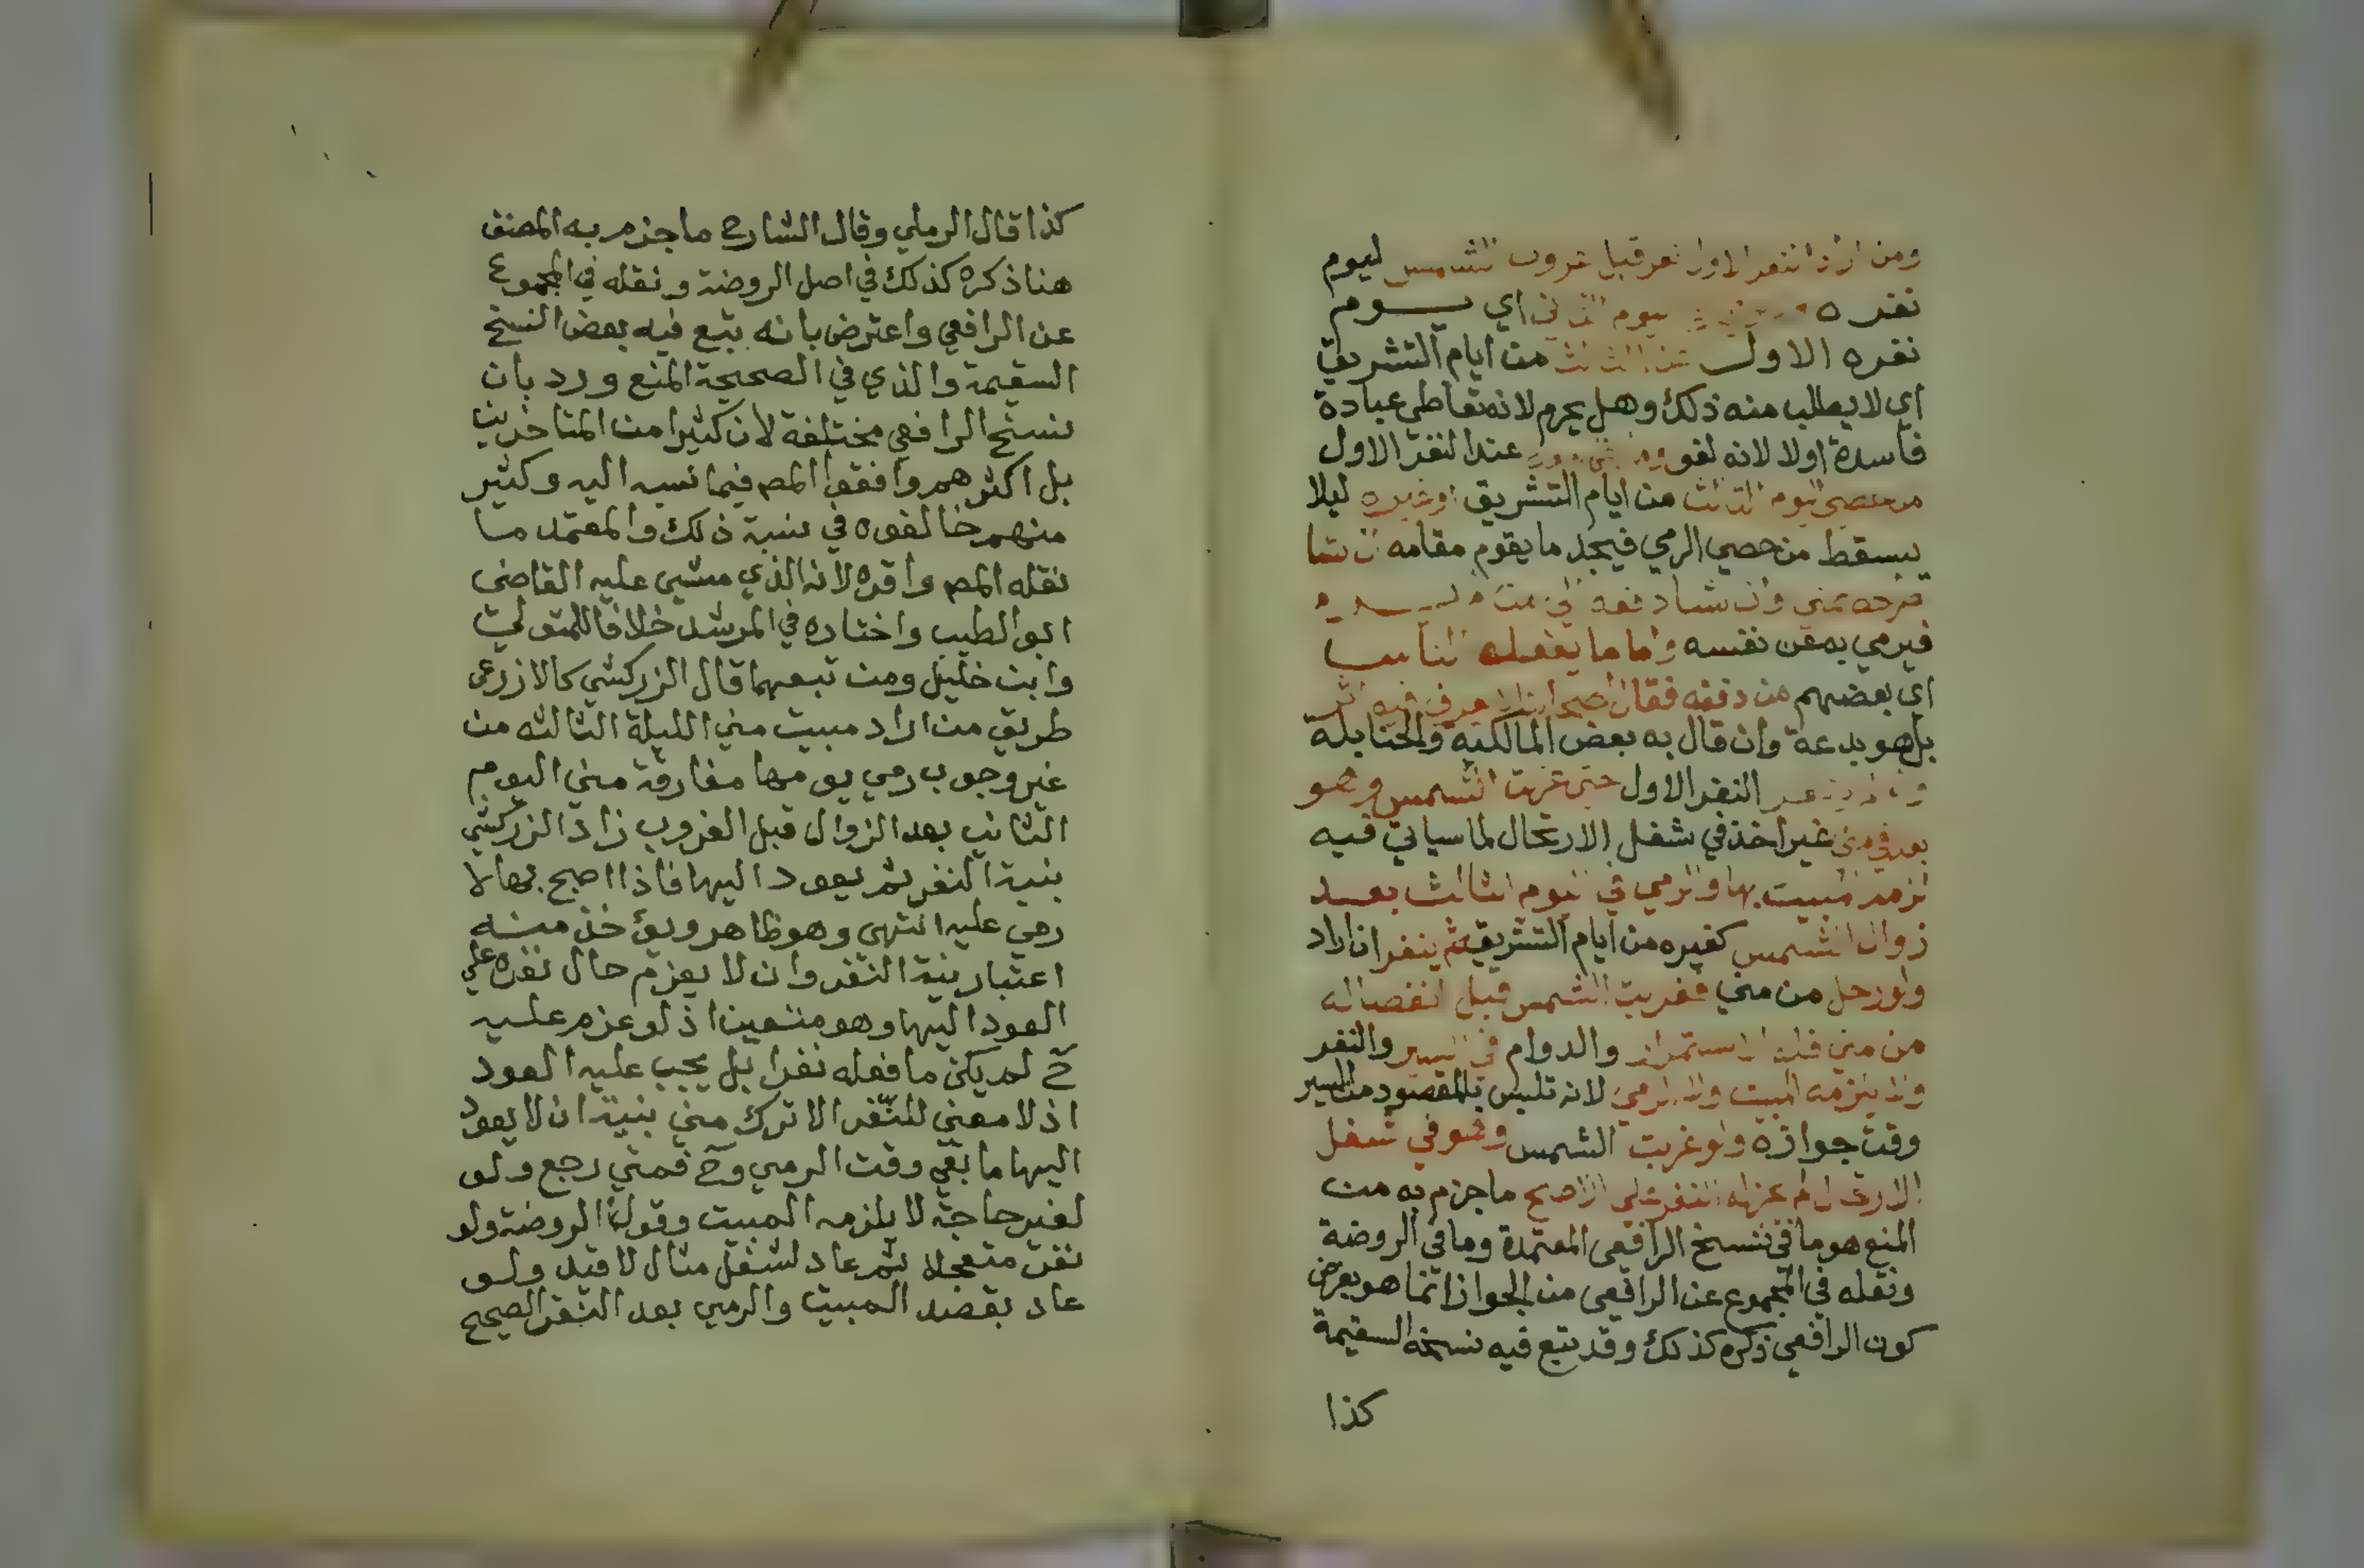 ومن اراد النفر الاول نفر قبل غروب الشمس ليوم
نفره اليوم الثاني اي يوم
نفره الاول عن الثالث من ايام التشريق
اي لا يطلب منه ذلك وهل يحرم لانه تعاطي عبادة
فاسدة اولا لانه لغو عند النفر الاول
من حصي اليوم الثالث من ايام التشريق اوغيره ليلا
يسقط من حصي الرمي فيجد ما يقوم مقامه ان شا
طرحه بمني وان شا دفعه الي من
فيرمي به عن نفسه واما ما يفعله الناس
اي بعضهم من دفنه فقال اصحابنا لا يعرف فيه اثر
بل هو بدعة وان قال به بعض المالكية والحنابلة
النفر الاول حتى غربت الشمس وهو
بعد في منى غير اخذ في شغل الارتحال لما سياتي فيه
لزمه المبيت بها والرمي في اليوم الثالث بعد
زوال الشمس كغيره من ايام التشريق ثم ينفر ان اراد
ولو رحل من مني فغربت الشمس قبل انفصاله
من مني فله الاستمرار والدوام في السير والنفر
ولا يلزمه المبيت ولا الرمي لانه تلبس بالمقصود من السير
وقت جوازه ولو غربت الشمس وهو في شغل
الارتحال لم يجز له النفر على الاصح ما جزم به من
المنع هو ما في نسخ الرافعي المعتمدة وما في الروضة
ونقله في المجموع عن الرافعي من الجواز انما هو بعرض
كون الرافعي ذكره كذلك وقد تبع فيه نسخه السقيمة
كذا
كذا قال الرملي وقال الشارح ما جزم به المصنف
هنا ذكره كذلك في اصل الروضة ونقله في المجموع
عن الرافعي واعترض بانه تبع فيه بعض النسخ
السقيمة والذي في الصحيحة المنع ورد بان
نسخ الرافعي مختلفة لان كثيرا من المتاخرين
بل اكثرهم وافقوا المص فيما نسبه اليه وكثير
منهم خالفوه في نسبة ذلك والمعتمد ما
نقله المص واقره لانه الذي مشي عليه القاضي
ابو الطيب واختاره في المرشد خلافا للمتولي
وابن خليل ومن تبعهما قال الزركشي كالاذرعي
طريق من اراد مبيت مني الليلة الثالثه من
غير وجوب رمي يومها مفارقة مني اليوم
الثاني بعد الزوال قبل الغروب زاد الزركشي
بنية النفر ثم يعود اليها فاذا اصبح بها لا
رمي عليه انتهى وهو ظاهر ويؤخذ منه
اعتبار نية النفر وان لا يعزم حال نفره علي
العود اليها وهو متعين اذ لو عزم عليه
ح لم يكن ما فعله نفرا بل يجب عليه العود
اذ لا معني للنفر الا ترك مني بنية ان لا يعود
اليها ما بقي وقت الرمي وح فمتي رجع ولو
لغير حاجة لا يلزمه المبيت وقول الروضة ولو
نفر متعجلا ثم عاد لشغل مثال لا قيد ولو
عاد بقصد المبيت والرمي بعد النفر الصحيح